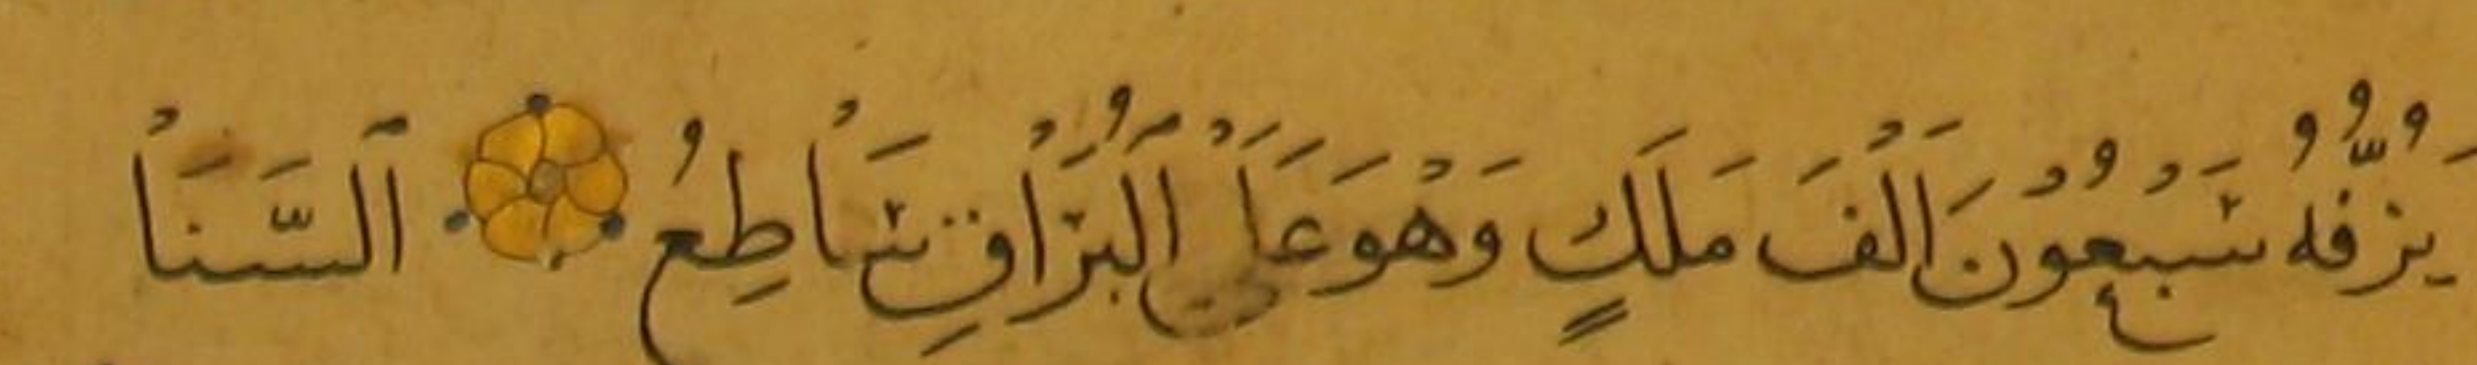 يَزُفُّهُ سَبْعُونَ أَلْفَ مَلَكٍ وَهْوَ عَلَى الْبُرَاقِ سَاطِعُ السَّنَا